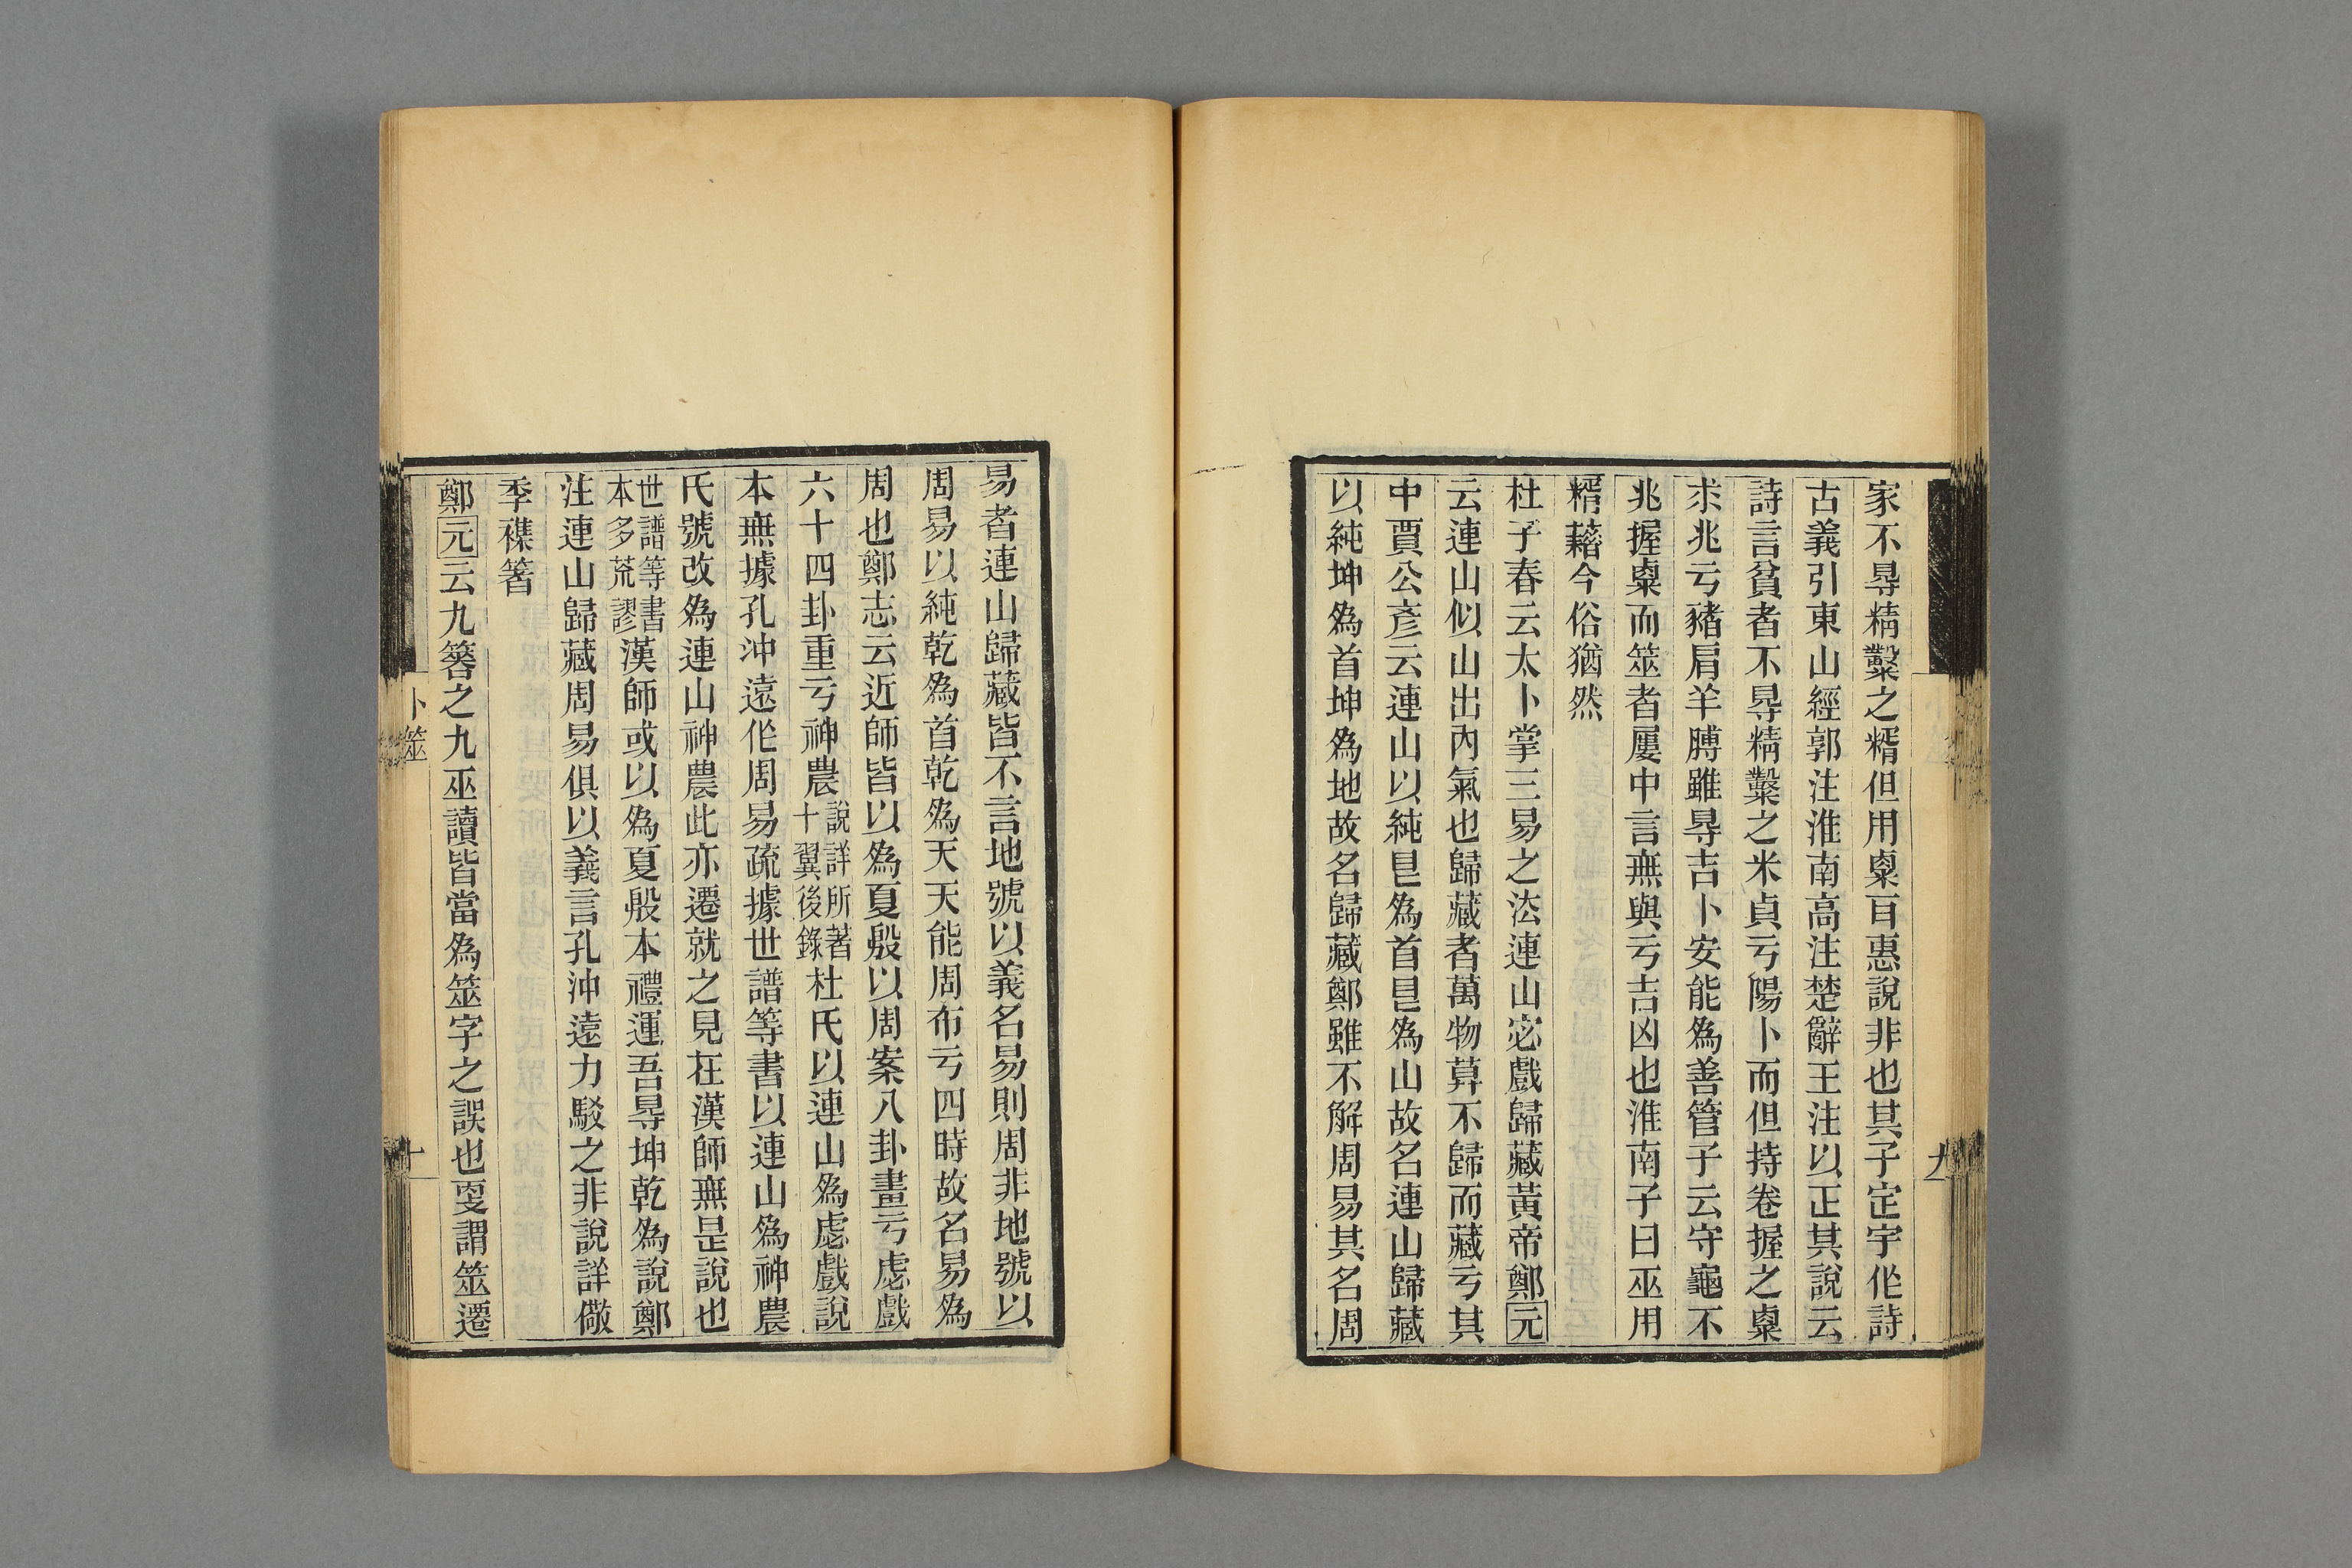 家不㝵精鑿之糈但用㮚百惠說非也其子定宇作詩
古義引東山經郭注淮南高注楚辭王注以正其說云
詩言貧者不㝵精鑿之米貞亏陽卜而但持卷握之㮚
求兆亏豬肩羊膊雖㝵吉卜安能爲善管子云守龜不
兆握㮚而筮者屢中言無與亏吉凶也淮南子曰巫用
糈藉今俗猶然
杜子春云太卜掌三易之法連山宓戲歸藏黃帝鄭元
云連山似山出內氣也歸藏者萬物莫不歸而藏亏其
中賈公彥云連山以純艮爲首艮爲山故名連山歸藏
以純坤爲首坤爲地故名歸藏鄭雖不解周易其名周
九
易者連山歸藏皆不言地號以義名易則周非地號以
周易以純乾爲首乾爲天天能周布亏四時故名易爲
周也鄭志云近師皆以爲夏殷以周案八卦畫亏虙戲
六十四卦重亏神農說詳所著十翼後錄杜氏以連山爲虙戲說
本無據孔沖遠作周易疏據世譜等書以連山爲神農
氏號改爲連山神農此亦遷就之見在漢師無是說也
世譜等書本多荒謬漢師或以爲夏殷本禮運吾㝵坤乾爲說鄭
注連山歸藏周易俱以義言孔沖遠力駁之非說詳儆
季襍箸
鄭元云九簭之九巫讀皆當爲筮字之誤也㪅謂筮遷
卜筮
十